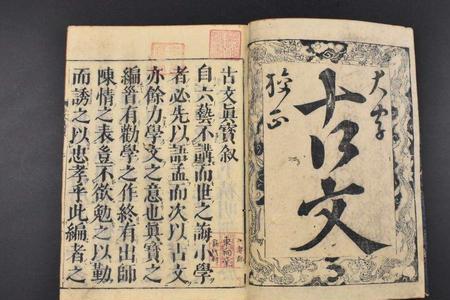 大字
古文
校正
古文眞寳叙
自六藝不講而世之誨小學
者必先以語孟而次以古文
亦餘力學文之意也眞寳之
編首有勸學之作終有出師
陳情之表豈不欲勉之以勤
而誘之以忠孝乎此編者之